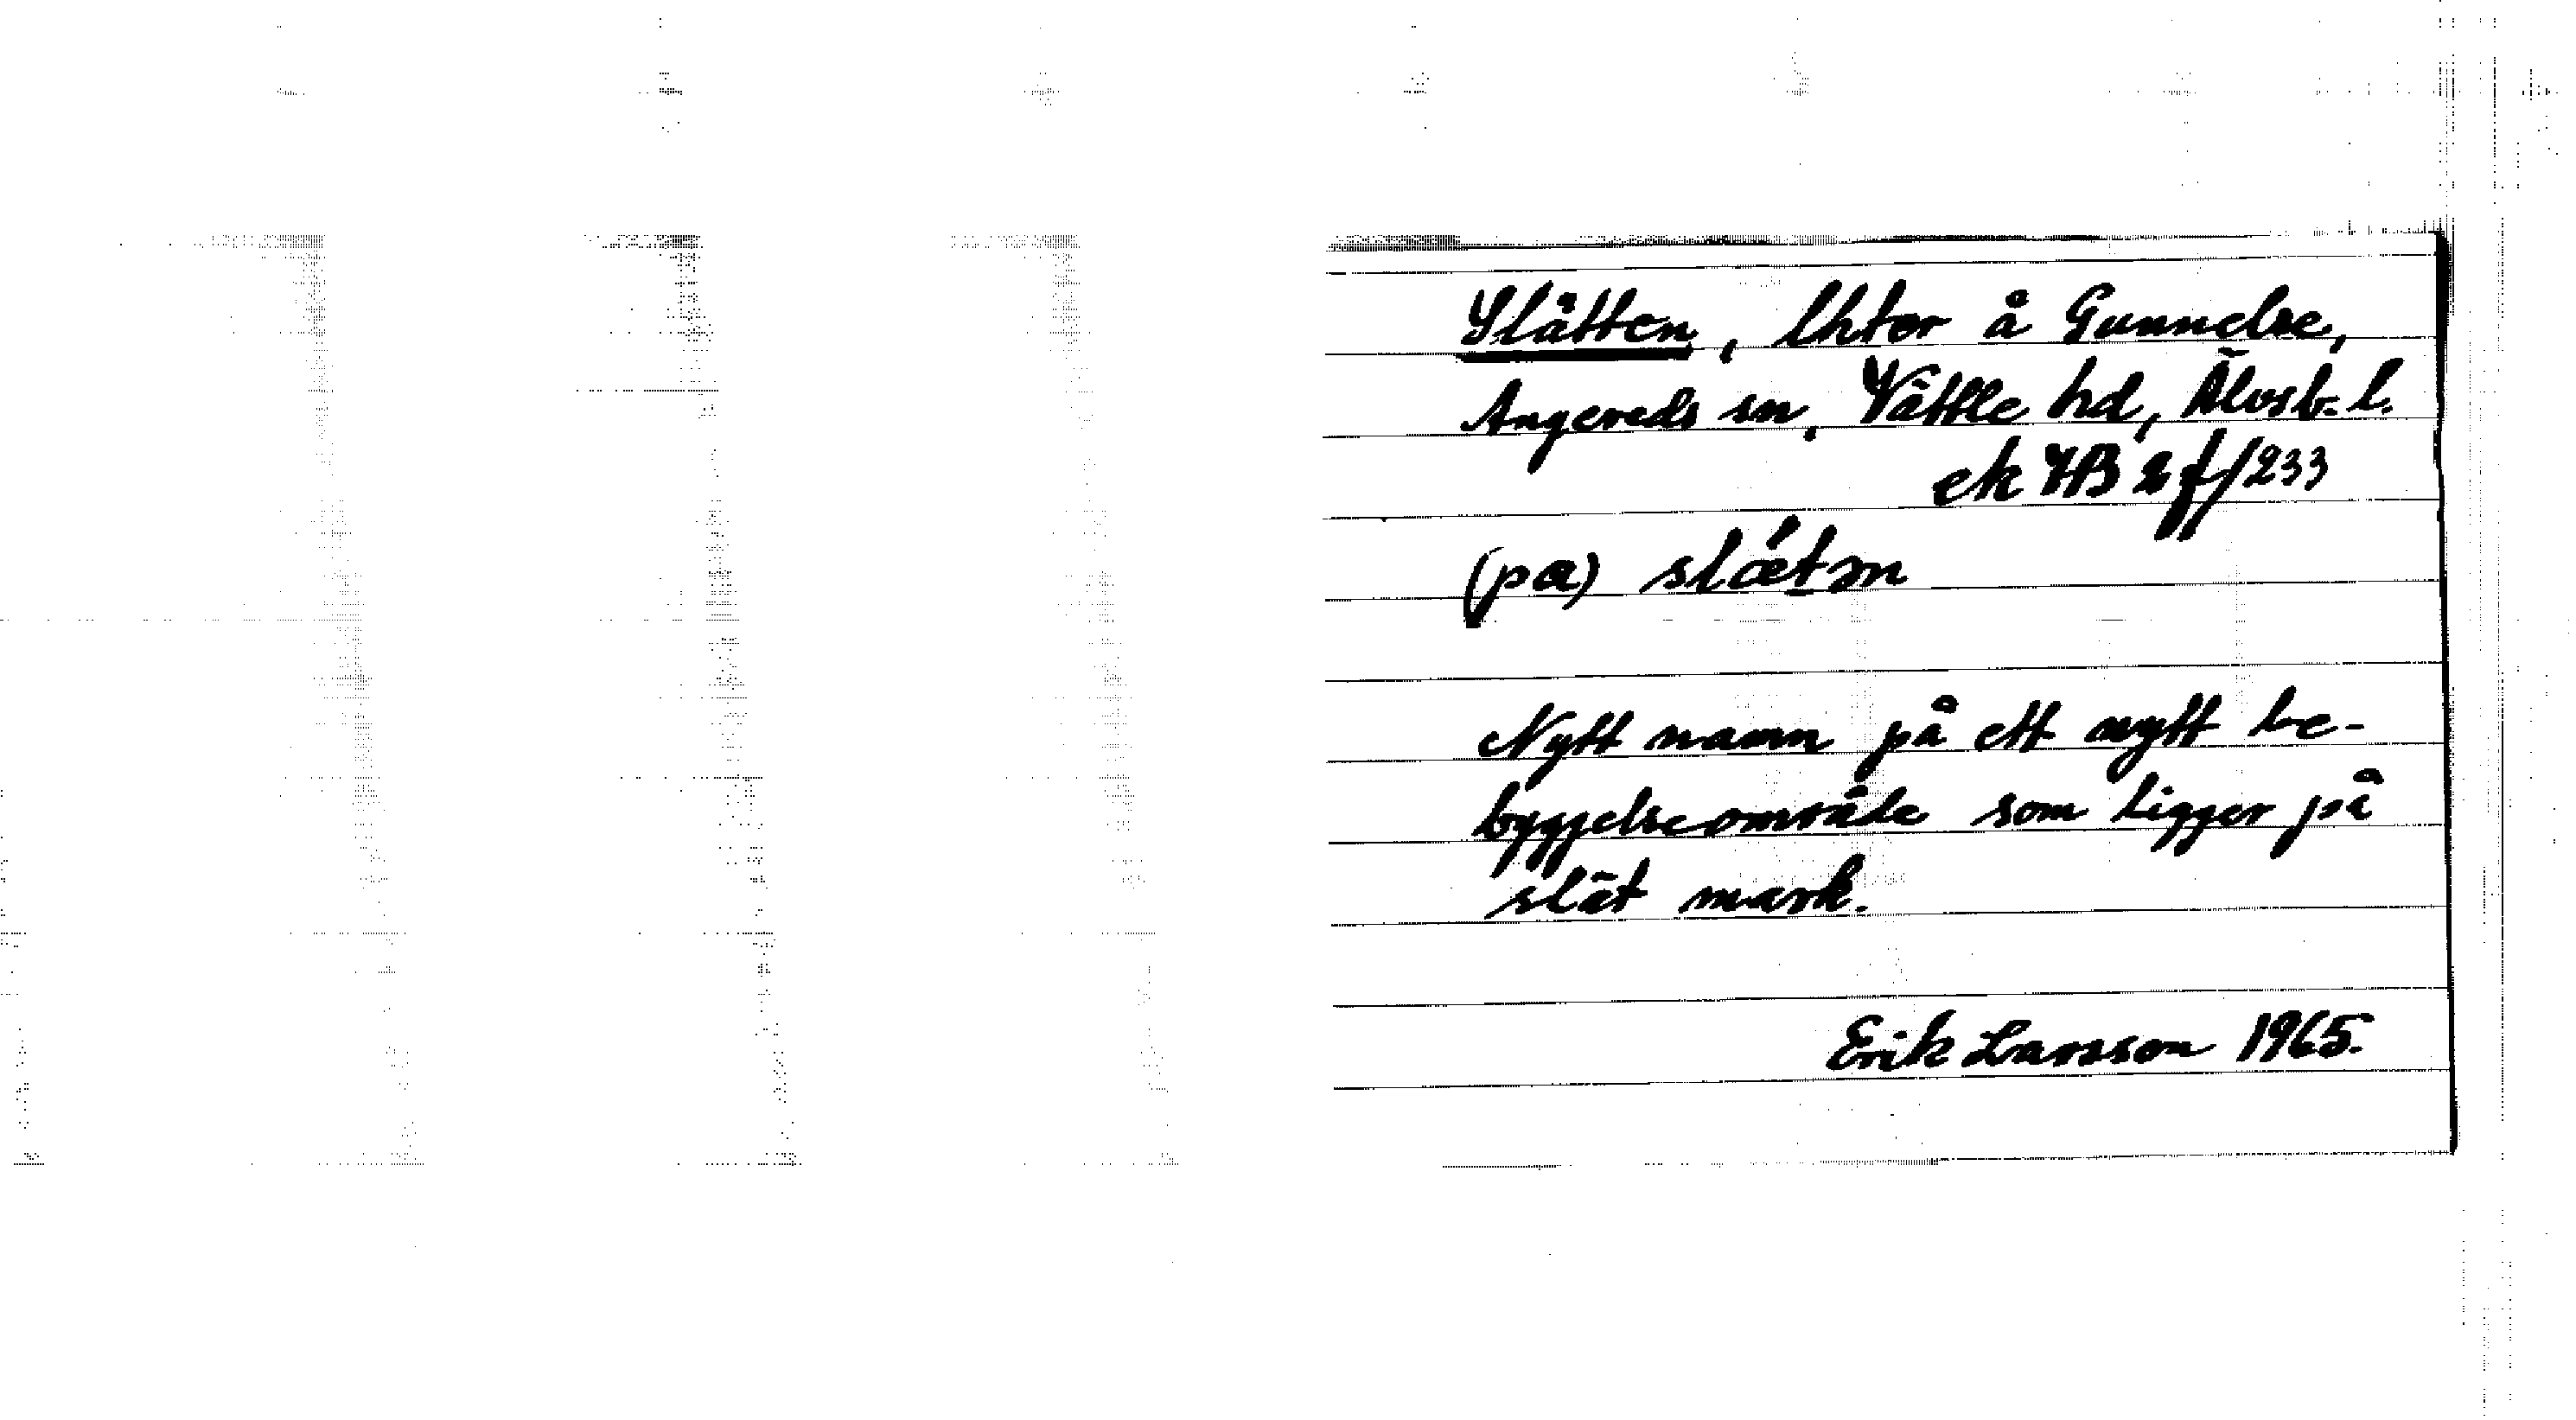 Slätten, lhter å Gunnelse,
Angereds sn, Vättle hd, Älvsb. l.
ek 7B 2 f/233
(pa) slǽtən
Nytt namn på ett nytt be-
byggelseområde som ligger på
slät mark.
Erik Larsson 1965.